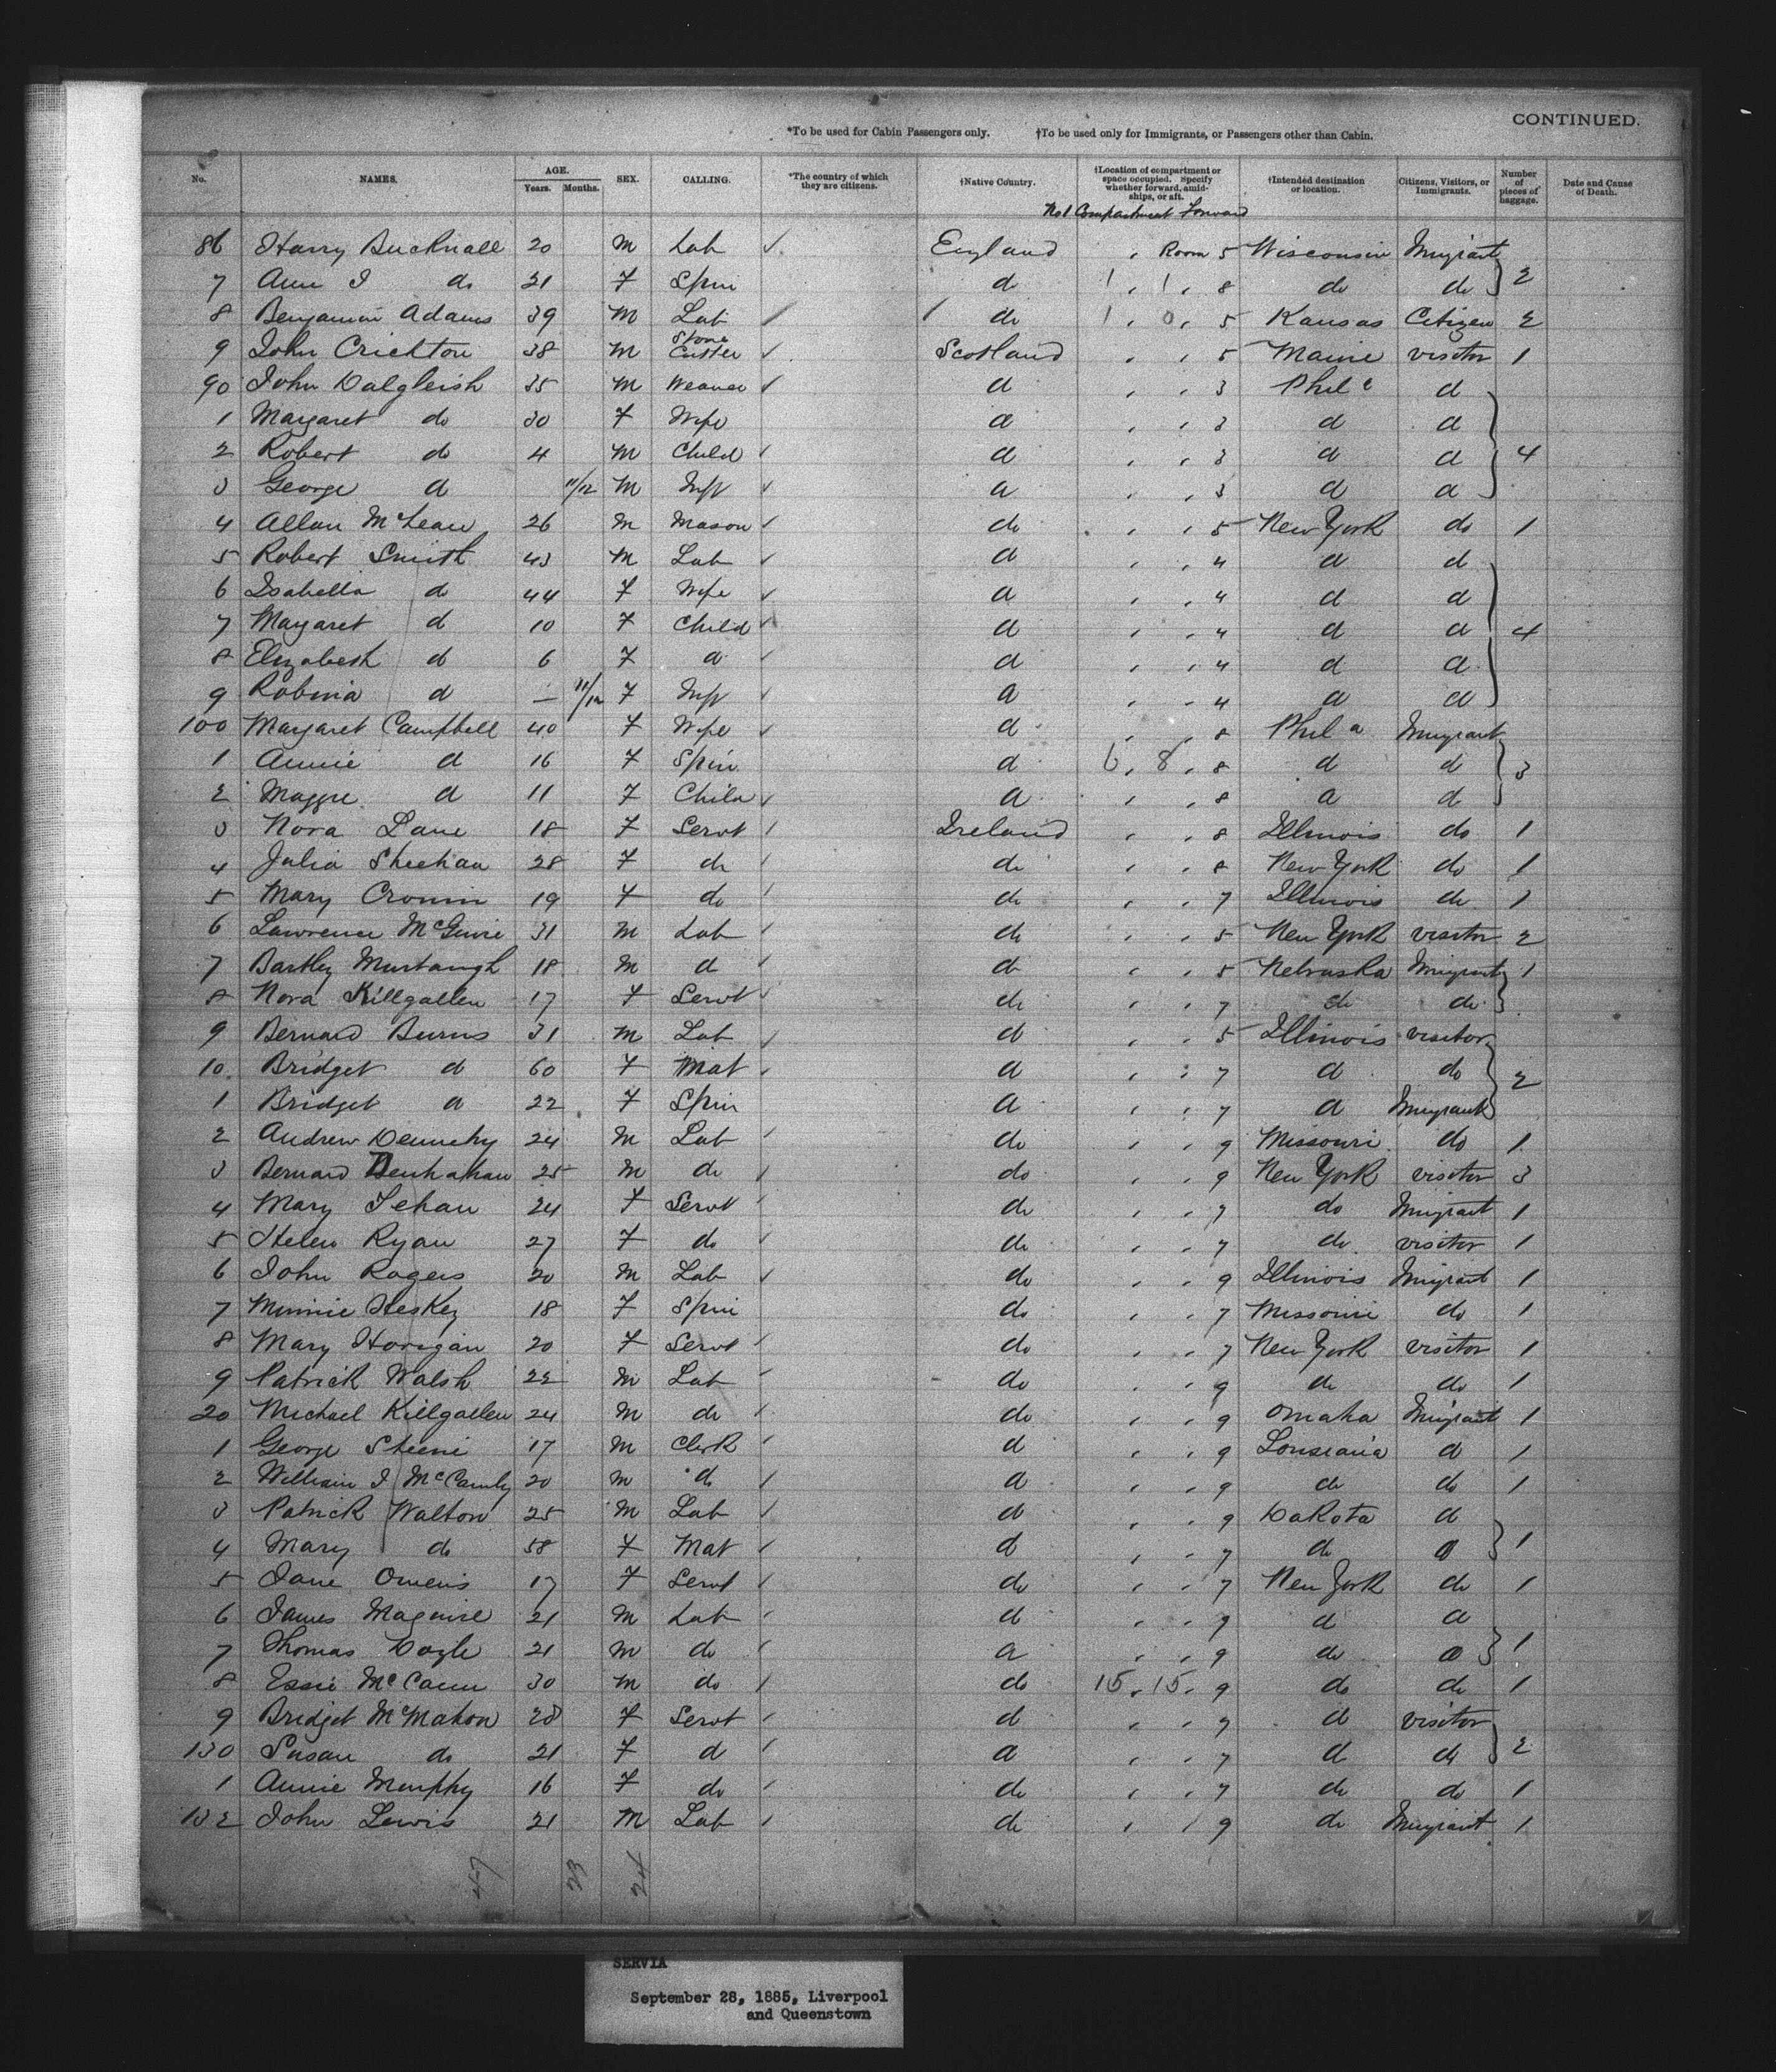 CONTINUED.
*To be used for Cabin Passengers only. †To be used only for Immigrants, or Passengers other than Cabin.
No. NAMES. AGE. Years. Months. SEX. CALLING. *The country of which they are citizens. †Native Country. †Location of compartment or space occupied. Specify whether forward, amidships, or aft. †Intended destination or location. Citizens, Visitors, or Immigrants. Number of pieces of baggage. Date and Cause of Death.
No 1 Compartment Forward
86 Harry Bucknall 20 M Lab England Room 5 Wisconsin Imigrant
7 Ann J do 21 F Spin do 8 do do 2
8 Benjamin Adams 39 M Lab do 5 Kansas Citizen 2
9 John Crichton 38 M Stone Cutter Scotland 5 Maine visitor 1
90 John Dalgleish 35 M Weaver d 3 Phila d
1 Margaret do 30 F Wife d 3 d d
2 Robert do 4 M Child d 3 d d 4
3 George d 11/12 M Inft d 3 d d
4 Allan McLean 26 M Mason do 5 New York do 1
5 Robert Smith 43 M Lab d 4 d d
6 Isabella do 44 F Wife d 4 d d
7 Margaret d 10 F Child d 4 d d 4
8 Elizabeth d 6 F d d 4 d d
9 Robina d — 11/12 F Inft d 4 d d
100 Margaret Campbell 40 F Wife d 8 Phila Imigrant
1 Annie d 16 F Spin d 6 8 8 d d 3
2 Maggie d 11 F Child d 8 d d
3 Nora Lane 18 F Servt Ireland 8 Illinois do 1
4 Julia Sheehan 28 F do do 8 New York do 1
5 Mary Cronin 19 F do do 7 Illinois do 1
6 Lawrence McGuire 31 M Lab do 5 New York visitor 2
7 Bartley Murtaugh 18 M d d 5 Nebraska Imigrant 1
8 Nora Killgallen 17 F Servt do 7 do do
9 Bernard Burns 31 M Lab d 5 Illinois visitor
10 Bridget d 60 F Mat d 7 d do 2
1 Bridget d 22 F Spin d 7 d Imigrant
2 Andrew Dennehy 24 M Lab do 9 Missouri do 1
3 Bernard Denhahan 25 M do do 9 New York visitor 3
4 Mary Tehan 24 F Servt do 7 do Imigrant 1
5 Helen Ryan 27 F do do 7 do visitor 1
6 John Rogers 20 M Lab do 9 Illinois Imigrant 1
7 Minnie Heskey 18 F Spin do 7 Missouri do 1
8 Mary Horigan 20 F Servt do 7 New York visitor 1
9 Patrick Walsh 22 M Lab do 9 do do 1
20 Michael Killgallen 24 M do do 9 Omaha Imigrant 1
1 George 17 M Clerk d 9 Lousiana d 1
2 William J 20 M do d 9 do do 1
3 Patrick Walton 25 M Lab d 9 Dakota d
4 Mary do 58 F Mat d 7 do d 1
5 Jane Owens 17 F Servt do 7 New York do 1
6 James Maguire 21 M Lab d 9 d d
7 Thomas Doyle 21 M do d 9 do d 1
8 Essie McCann 30 M do do 15 15 9 do do 1
9 Bridget McMahon 28 F Servt d 7 d visitor
130 Susan do 21 F d d 7 d do 2
1 Annie Murphy 16 F do do 7 do do 1
132 John Lewis 21 M Lab do 9 do Imigrant 1
47 23 24
SERVIA
September 28, 1885, Liverpool
and Queenstown